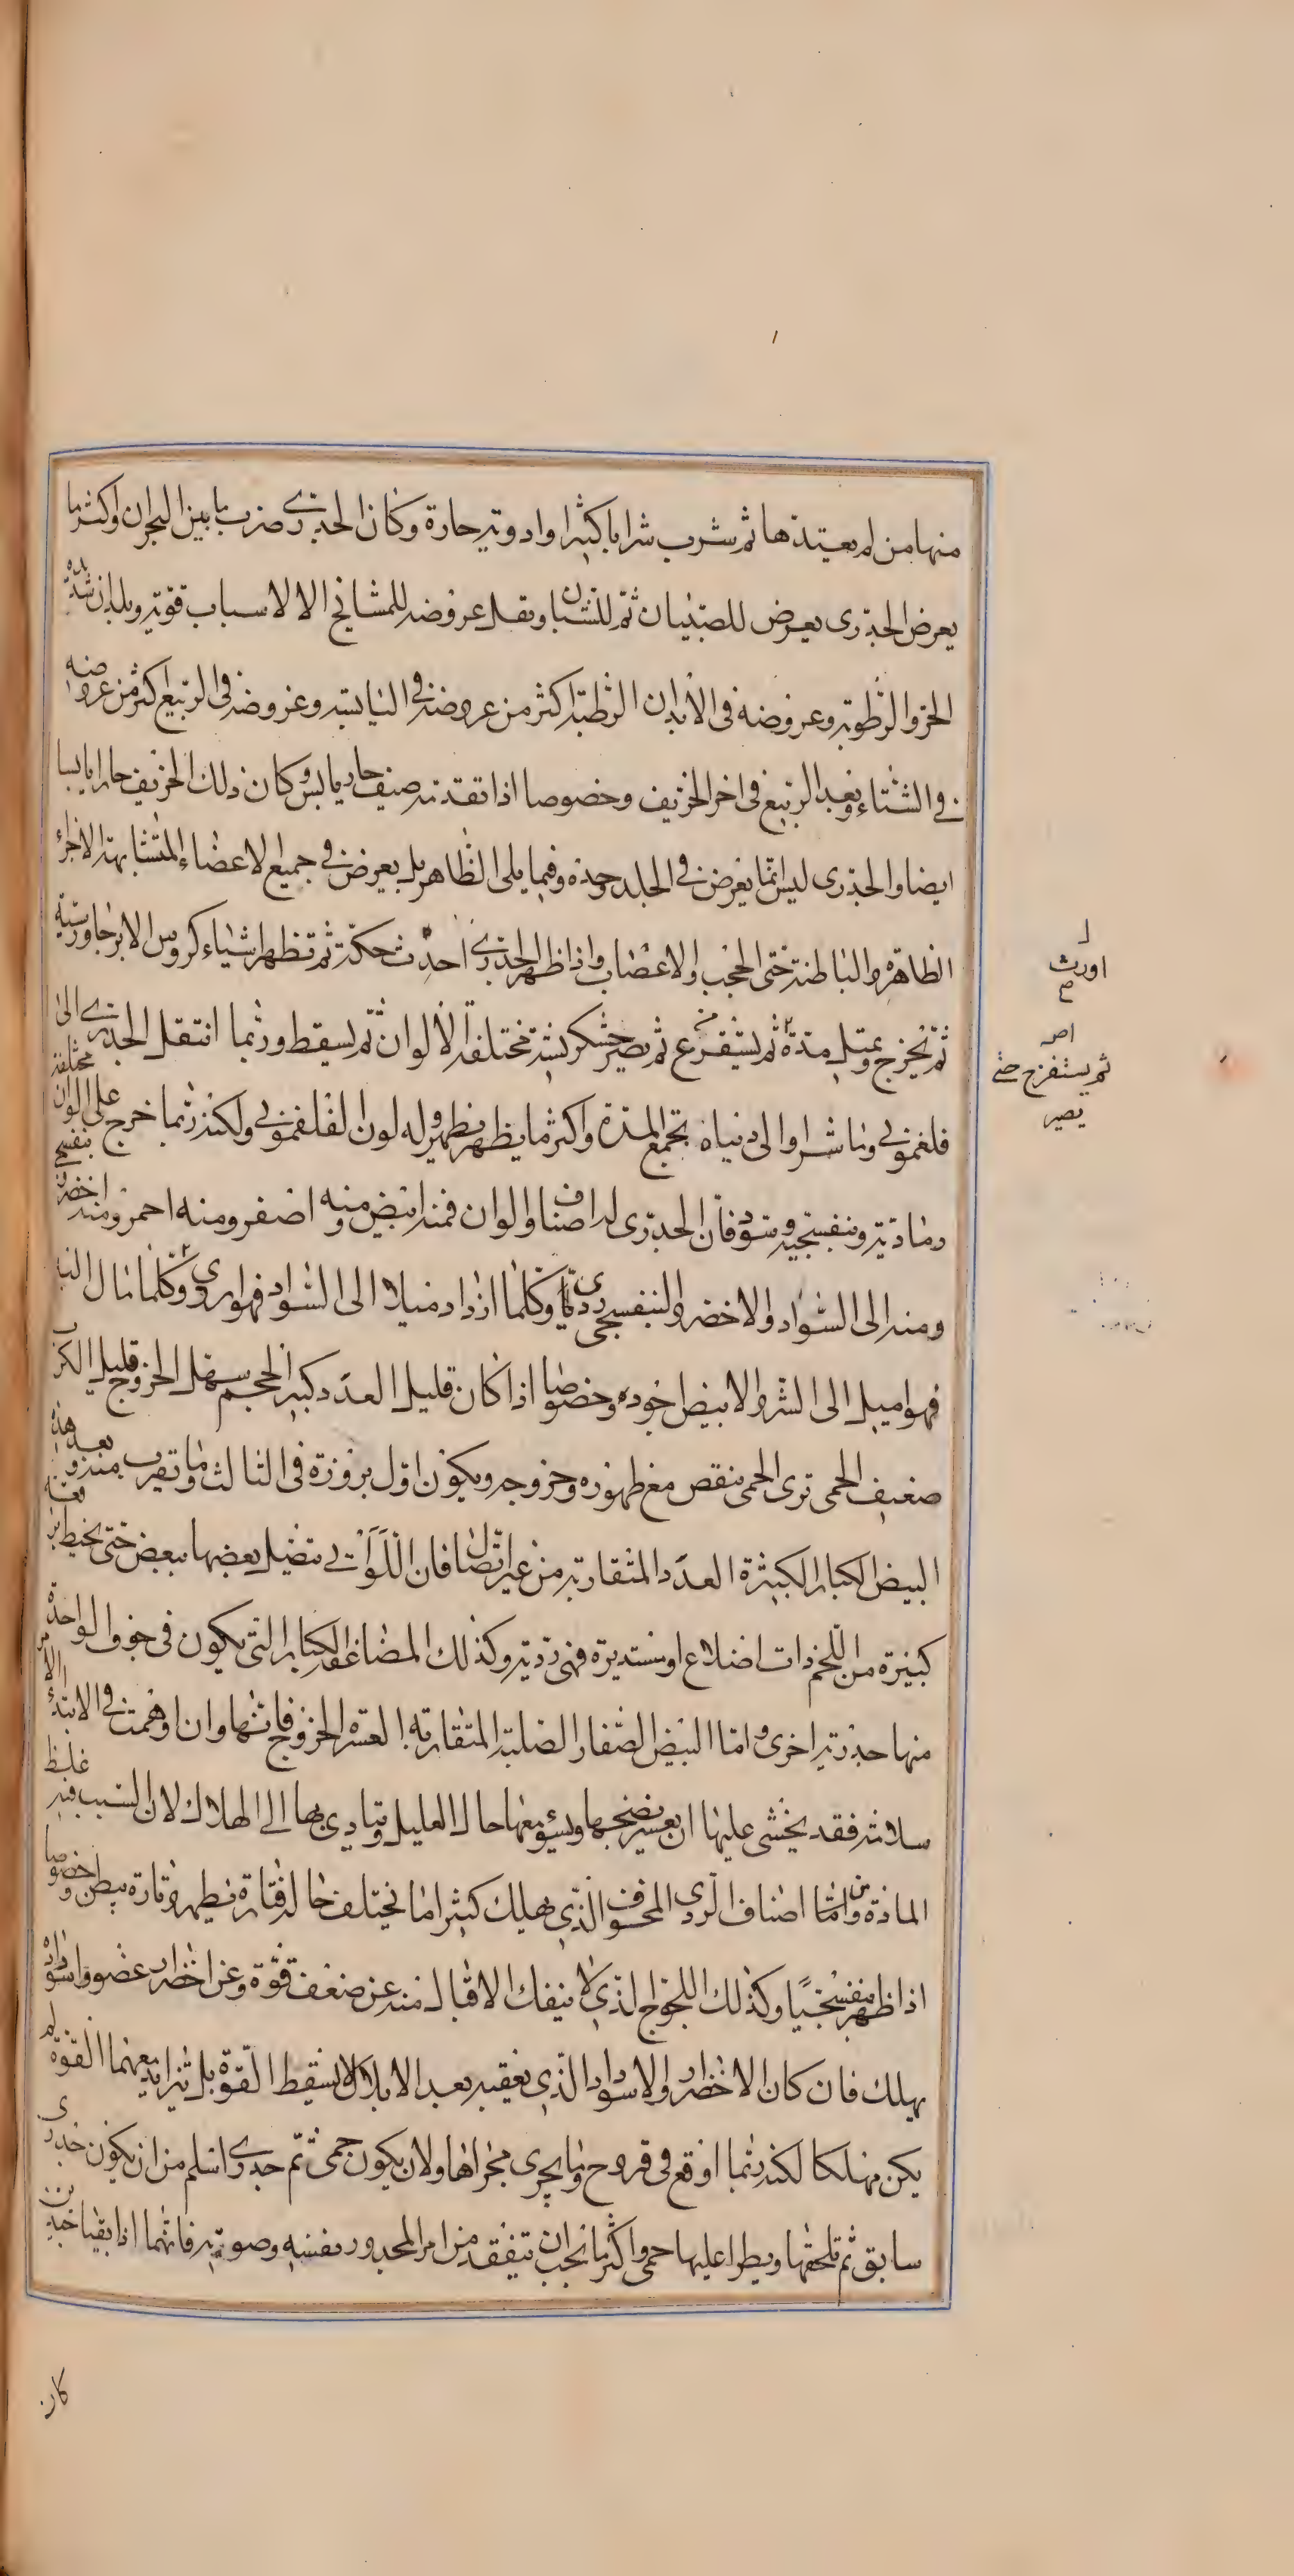 منها من لم يعتدها ثم شرب شرابا كثيرا وادوية حارة وكان الجدري ضرب ما بين البحران واكثر ما
يعرض الجدري يعرض للصبيان ثم للشبان ويقل عروضه للمشايخ الا لاسباب قوية وبلدان شديدة
الحر والرطوبة وعروضه فى الابدان الرطبة اكثر من عروضه فى اليابسة وعروضه فى الربيع اكثر من عروضه
فى الشتاء وبعد الربيع فى اخر الخريف وخصوصا اذا تقدمه صيف حار يابس وكان ذلك الخريف حارا يابسا
ايضا والجدرى ليس انما يعرض فى الجلد وحده وفيما يلى الظاهر بل يعرض فى جميع الاعضاء المتشابهة الاجزاء
الظاهرة والباطنة حتى الحجب والاعصاب واذا ظهر الجدرى احدث حكة ثم تظهر اشياء كروس الابر جاورسية
ثم يخرج ويمتلى مدة ثم يستفرغ ثم يصير خشكريشة مختلفة الالوان ثم يسقط وربما انتقل الجدرى الى
فلغمونى وماشرا والى دنباه تجمع المدة واكثر ما يظهر يظهر وله لون الفلغمونى ولكنه ربما خرج على الوان مختلفة
رمادية وبنفسجية وسود فان الجدرى له اصناف والوان فمنه ابيض ومنه اصفر ومنه احمر ومنه اخضر بنفسجى
ومنه الى السواد والاخضر والبنفسجى ردى وكلما ازداد ميلا الى السواد فهو اردى وكلما مال
فهو اميل الى الشر والابيض اجوده وخصوصا اذا كان قليل العدد كبير الحجم سهل الخروج قليل الكرب
ضعيف الحمى ترى الحمى ينقص مع ظهوره وخروجه ويكون اول بروزه فى الثالث وما تقرب منه وبعد هذه
البيض الكبار الكثيرة العدد المتقاربة من غير اتصال فان اللواتى يتصل بعضها ببعض حتى يحيط برقعة
كبيرة من اللحم ذات اضلاع او مستديرة فهى ردية وكذلك المضاعفة الكبار التى يكون فى جوف الواحدة
منها جدرية اخرى واما البيض الصغار الصلبة المتقاربة العسرة الخروج فانها وان اوهمت فى الابتداء
سلامة فقد يخشى عليها ان يعسر نضجها ويسوء معها حال العليل ويتادى بها الى الهلاك لان السبب فيه غلظ
المادة واما من اصناف الردى المخوف الذى يهلك كثيرا ما يختلف حاله فتارة يظهر وتارة يبطن وخصوصا
اذا ظهر بنفسجيا وكذلك اللجوج الذى لا ينفك الاقبال منه عن ضعف قوة وعن اخضرار عضو واسوداده
يهلك فان كان الاخضرار والاسوداد الذى يعقبه بعد الابلال لا يسقط القوة بل يتزايد معهما القوة لم
يكن مهلكا لكنه ربما اوقع فى قروح وما يجرى مجراها ولان يكون حمى ثم جدرى اسلم من ان يكون جدرى
سابق ثم تلحقها ويطرا عليها حمى واكثر ما يجب ان يتفقد من امر المجدور نفسه وصوته فانهما اذا بقيا جيدين
كان
اورث
ثم يستفرغ حتى
يصير